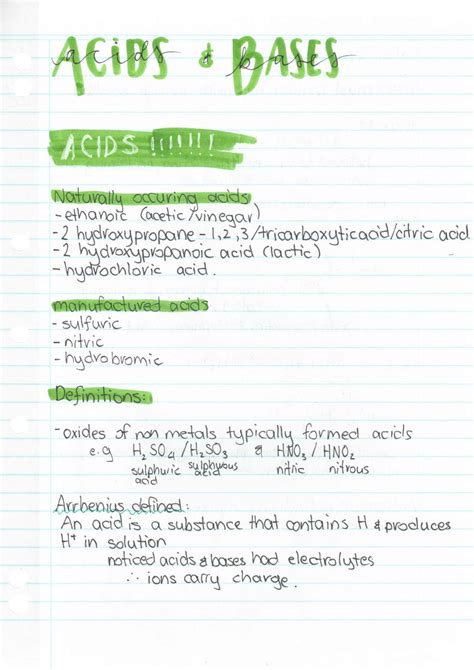 ACIDS & BASES
acids & bases
ACIDS !!!!!!!
Naturally occuring acids
- ethanoic (acetic/vinegar)
- 2 hydroxypropane - 1,2,3/tricarboxyticacid/citric acid
- 2 hydroxypropanoic acid (lactic)
- hydrochloric acid.
manufactured acids
- sulfuric
- nitric
- hydrobromic
Definitions:
- oxides of non metals typically formed acids
e.g H₂SO₄/H₂SO₃ & HNO₃/HNO₂
sulphuric sulphuous nitric nitrous
acid
Arrhenius defined:
An acid is a substance that contains H & produces
H⁺ in solution
noticed acids & bases had electrolytes
∴ ions carry charge.